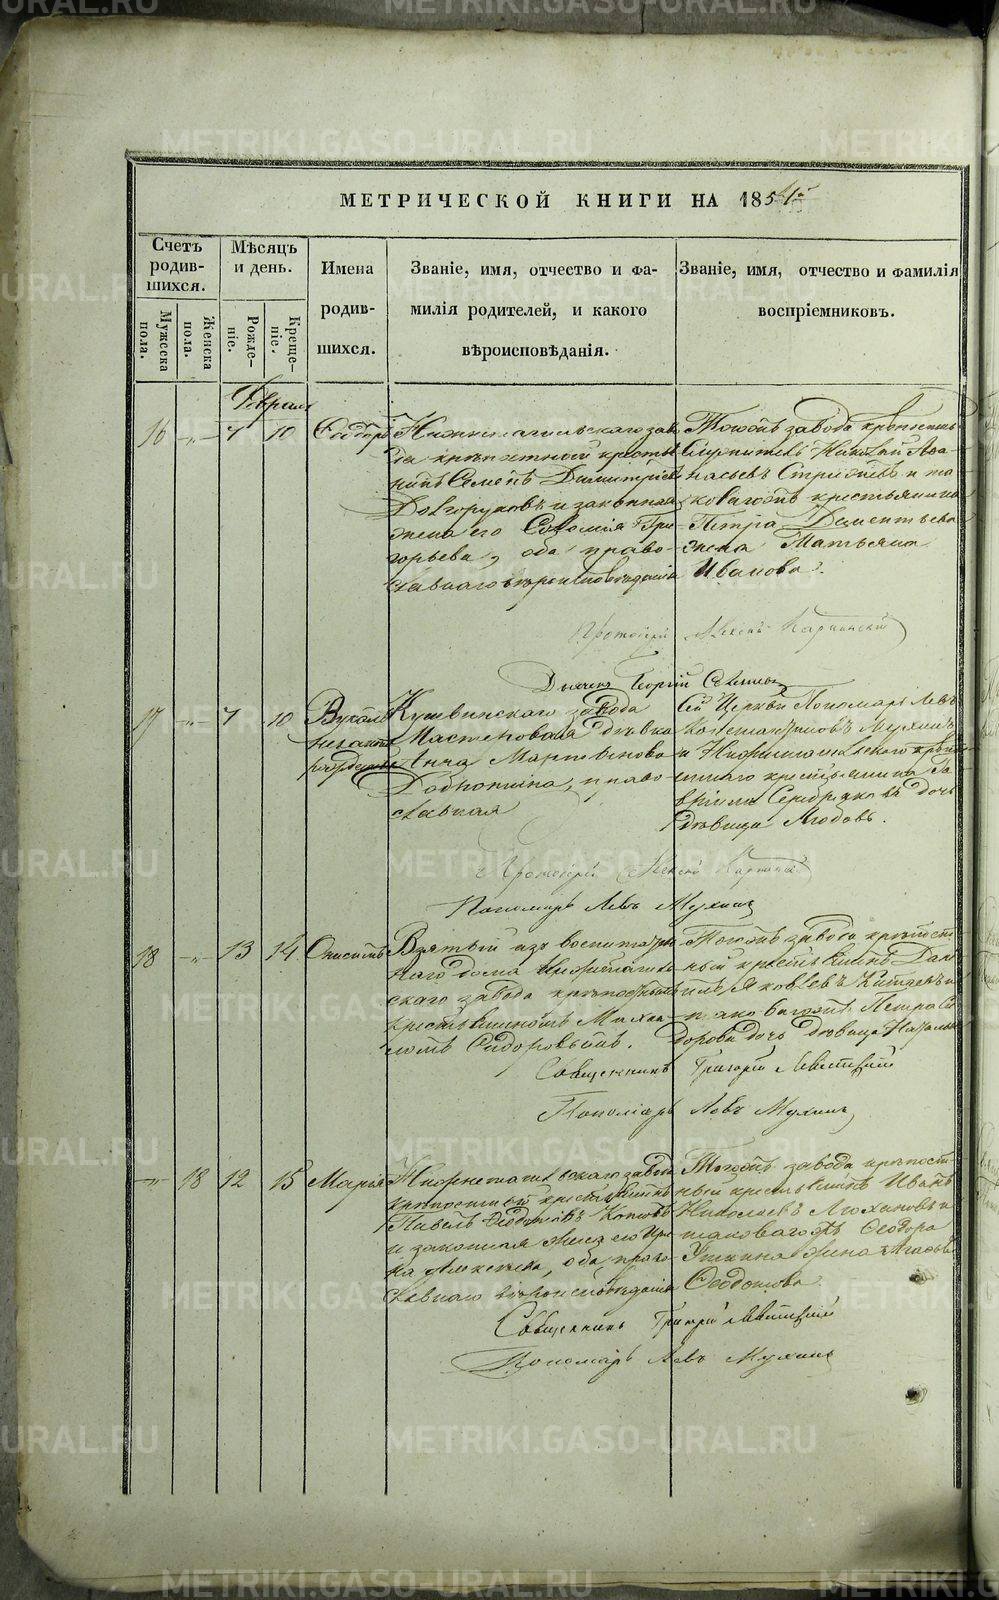 МЕТРИЧЕСКОЙ КНИГИ НА 1854
Счетъ родив-шихся.
Мужеска пола.
Женска пола.
Мѣсяцъ и день.
Рожде-ніе.
Креще-ніе.
Имена
родив-
шихся.
Званіе, имя, отчество и фа-
милія родителей, и какого
вѣроисповѣданія.
Званіе, имя, отчество и фамилія
воспріемниковъ.
Февраля
16 -„- 7 10 Ѳеодоръ
Нижнетагильскаго заво
да крѣпостной крестья
нинъ Семенъ Димитріевъ
Долгоруковъ и законная
жена его Соломія Гри-
горьева, оба право-
славнаго вѣроисповѣданія
Тогожъ завода крѣпостный
служитель Николай Аѳа-
насьевъ Стрижевъ и та
коваго жъ крестьянина
Петра Дементьева
жена Татьяна
Иванова.
Протоіерей Алексій Карпинскій
Дьячекъ Георгій
17 -„- 7 10 Вуколъ
незакон
рожденный
Кушвинскаго завода
Мастеровая дѣвка
Анна Мартинова
православная
Сей Церкви Пономарь Левъ
Константиновъ Мухинъ
и Нижнетагильскаго крѣпо
стнаго крестьянина Га
вріила Серебрякова дочь
дѣвица Любовь.
Протоіерей Алексій Карпинскій
Пономарь Левъ Мухинъ
18 -„- 13 14 Онисимъ
Взятый изъ воспитатель
наго дома Нижнетагиль
скаго завода крѣпостнымъ
крестьяниномъ Михаи
ломъ Сидоровымъ.
Тогожъ завода крѣпост-
ный крестьянинъ Дані
илъ Яковлевъ Китаевъ и
таковагожъ Петра Си
дорова дочь дѣвица Наталья
Священникъ Григорій Левитскій
Пономарь Левъ Мухинъ
-„- 18 12 15 Марія
Нижнетагильскаго завода
крѣпостный крестьянинъ
Павелъ Ѳедотовъ Копыловъ
и законная жена его Ири
на Алексѣева, оба право-
славнаго вѣроисповѣданія
Тогожъ завода крѣпост-
ный крестьянинъ Иванъ
Николаевъ и
таковагожъ Ѳеодора
Уткина жена Агафья
Ѳедотова
Священникъ Григорій Левитскій
Пономарь Левъ Мухинъ
METRIKI.GASO-URAL.RU